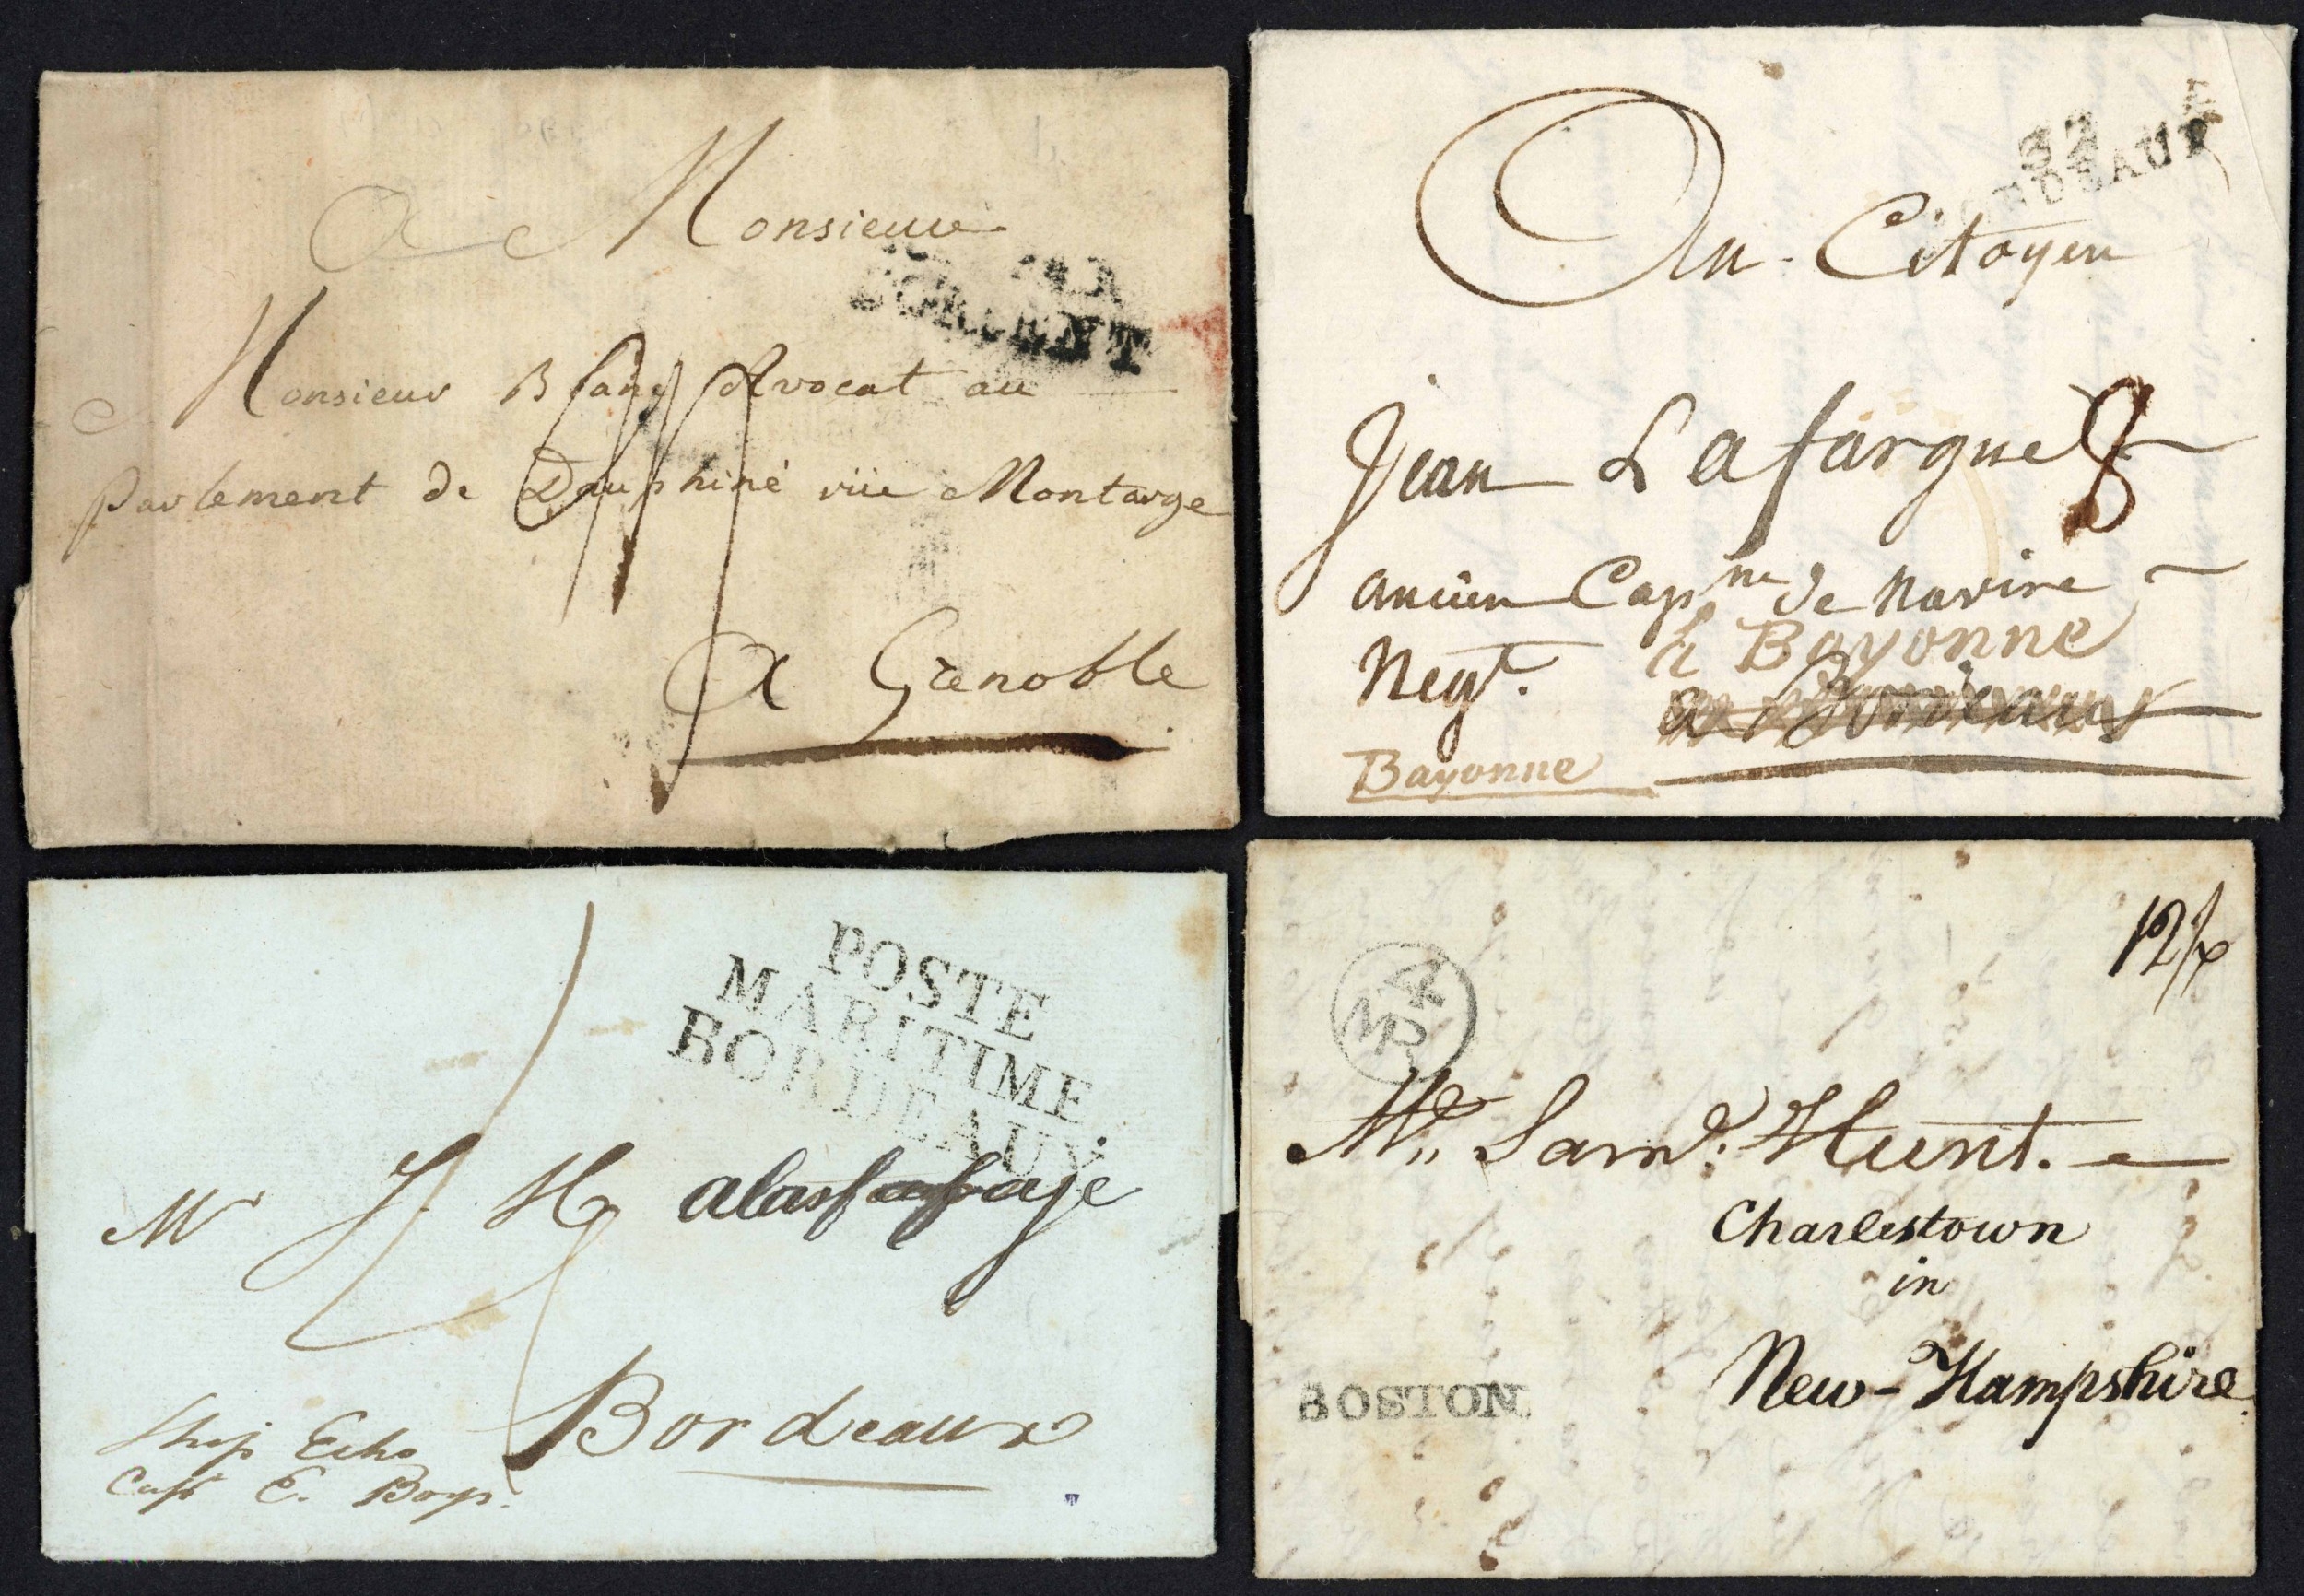 A Monsieur
COL PAR
LORIENT
Monsieur Blanc Avocat au
Parlement de Dauphiné rüe Montorge
A Grenoble
32
BORDEAUX
Au Citoyen
Jean Lafargue
8
ancien Capne de Navire
Negt.
à Bayonne
a Bordeaux
Bayonne
POSTE
MARITIME
BORDEAUX
Mr J. H
Bordeaux
Ship Echo
Capt E. Boys.
12½
MR
Mr. Saml. Hunt.
Charlestown
in
New-Hampshire
BOSTON